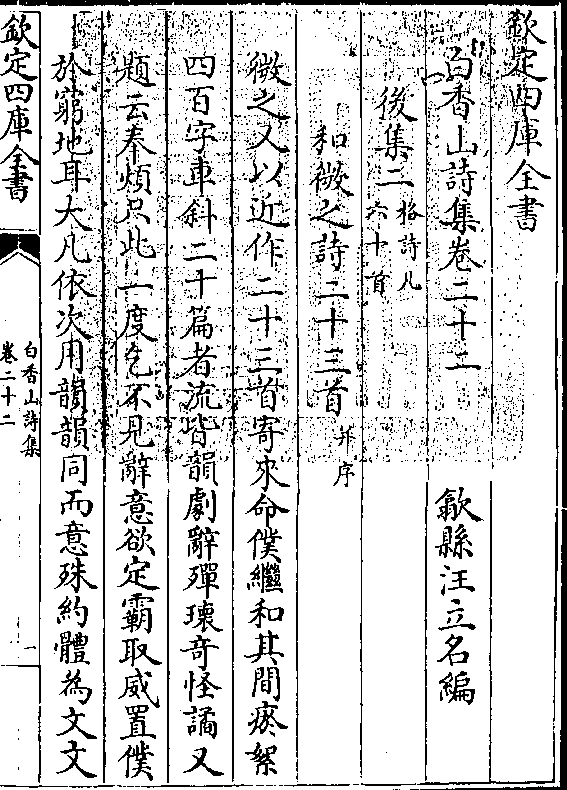 欽定四庫全書
白香山詩集卷二十二
歙縣汪立名編
後集二
格詩凡
六十首
和微之詩二十三首
并序
微之又以近作二十三首寄來命僕繼和其間瘀絮
四百字車斜二十篇者流皆韻劇辭殫瓌奇怪譎又
題云奉煩只此一度乞不見辭意欲定霸取威置僕
於窮地耳大凡依次用韻韻同而意殊約體為文文
欽定四庫全書
白香山詩集
卷二十二
一